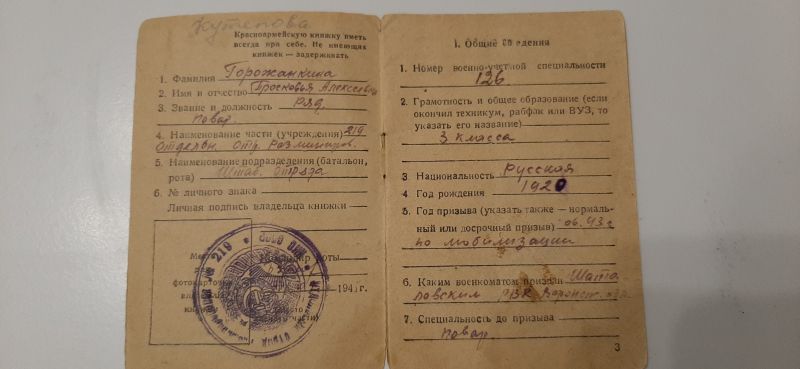 Кутепова
Красноармейскую книжку иметь
всегда при себе. Не имеющих
книжек — задерживать
1. Фамилия Горожанкина
2. Имя и отчество Просковья Алексеевна
3. Звание и должность ряд.
повар.
4. Наименование части (учреждения) 219
отдельн. отр. разминиров.
5. Наименование подразделения (батальон,
рота) Штаб. отряда
6. № личного знака
Личная подпись владельца книжки
219
194 г.
I. Общие сведения
1. Номер военно-учетной специальности
126
2. Грамотность и общее образование (если
окончил техникум, рабфак или ВУЗ, то
указать его название)
3 класса
3 Национальность Русская
4 Год рождения 1920
5. Год призыва (указать также — нормаль-
ный или досрочный призыв) 43 г
по мобилизации
6. Каким военкоматом призван Шата
ловским РВК Воронеж. обл.
7. Специальность до призыва
повар.
3